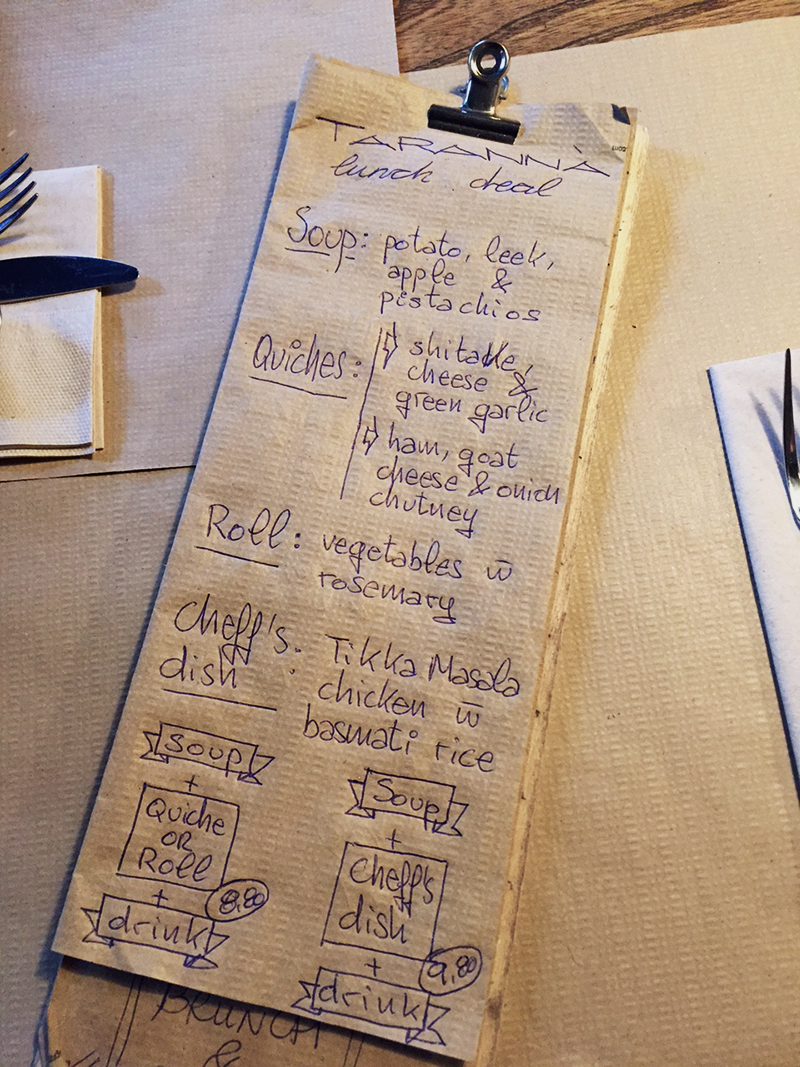 TARANNÀ
lunch deal
Soup: potato, leek,
apple &
pistachios
Quiches: ⇨ shitake,
cheese &
green garlic
⇨ ham, goat
cheese & onion
chutney
Roll: vegetables w̄
rosemary
Cheff's dish: Tikka Masala
chicken w̄
basmati rice
Soup
+
Quiche
OR
Roll
8,80
+
drink
Soup
+
Cheff's
dish
9,80
+
drink
BRUNCH
&